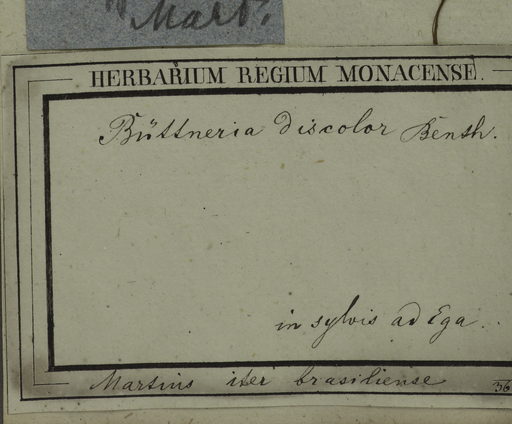 Mart.
HERBARIUM REGIUM MONACENSE.
Büttneria discolor Benth.
in sylvis ad Ega.
Martius iter brasiliense 36